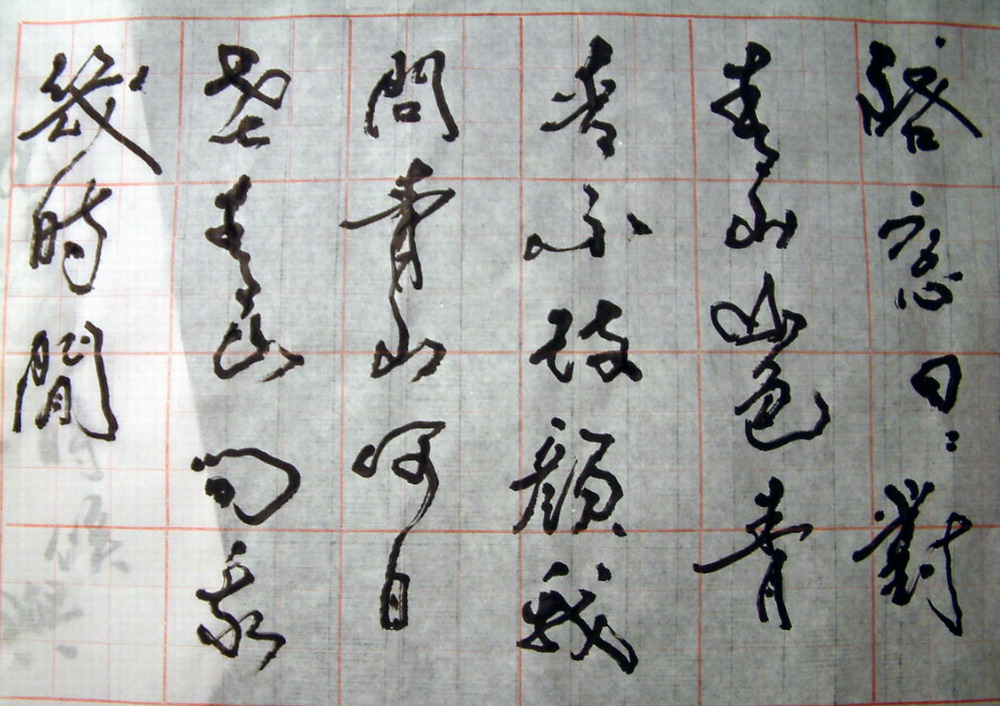 啓窓日々對
青山山色青
青不改顏我
問青山何日
老青山問我
幾時閒